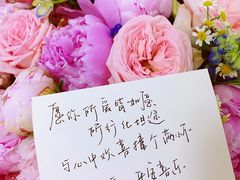 愿你所爱皆如愿
所行化坦途
与心中欢喜撞个满怀
生日喜乐